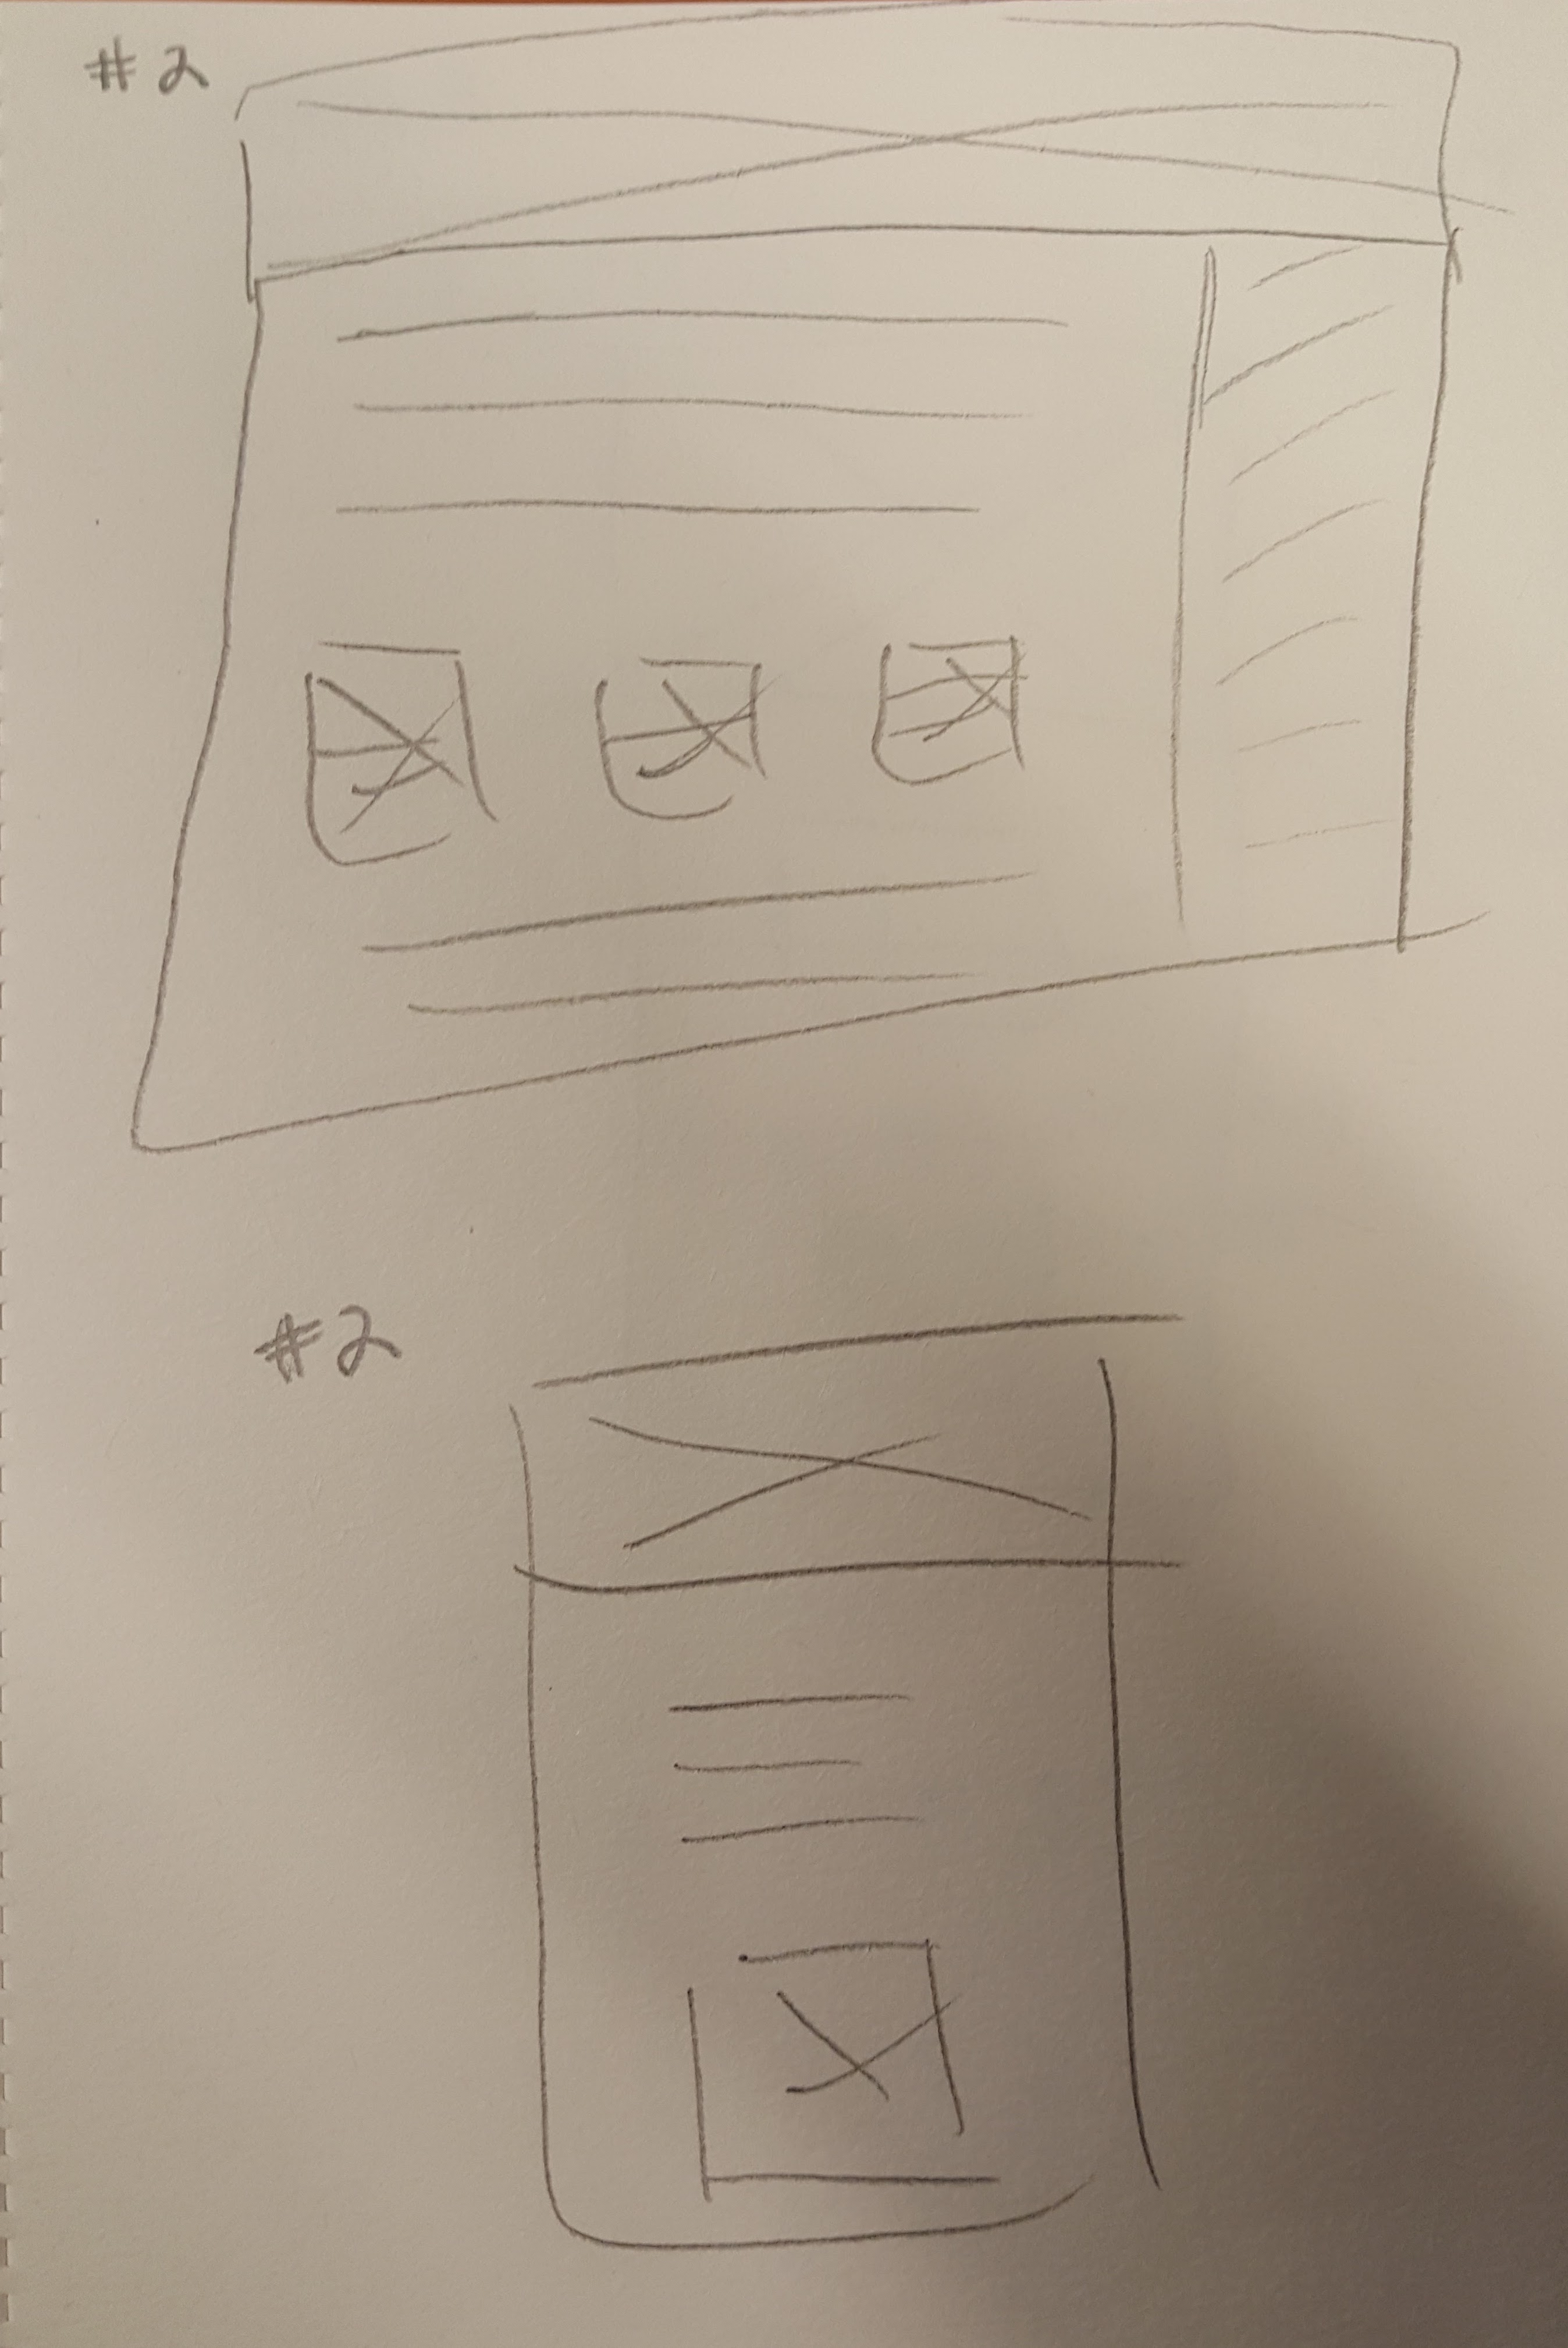 #2
#2